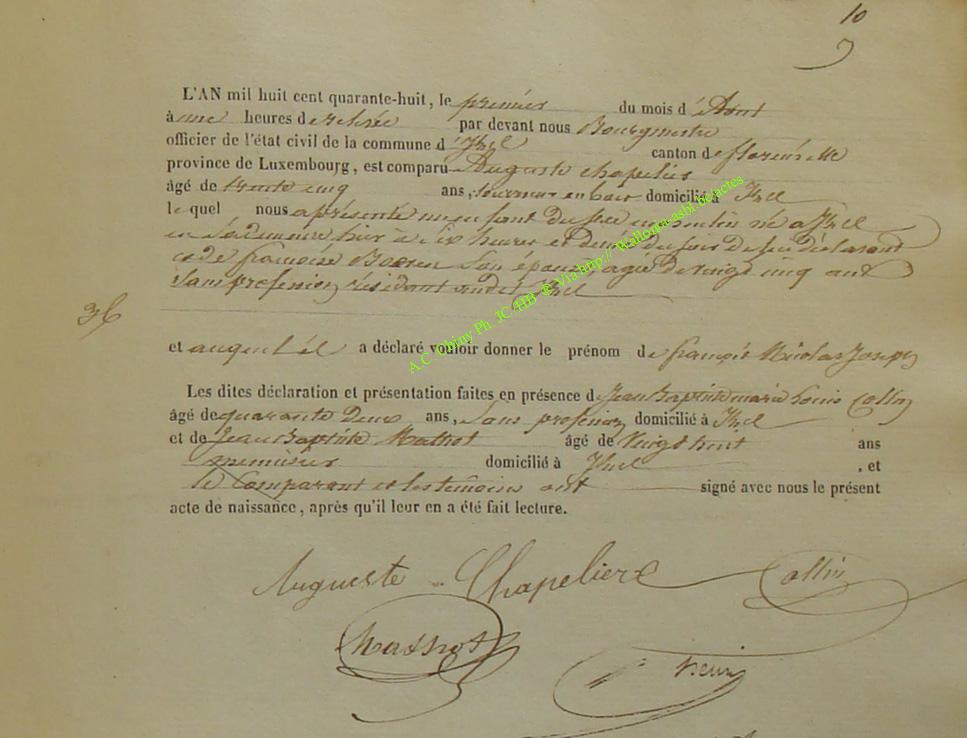 10
L'AN mil huit cent quarante-huit, le premier du mois d'Aout
à une heures de relevée par devant nous Bourgmestre
officier de l'état civil de la commune d'Izel canton de florenville
province de Luxembourg, est comparu Auguste chapelier
âgé de trente cinq ans, tourneur en bois domicilié à Izel
le quel nous a présenté un enfant du sexe masculin né a Izel
en Sa demeure hier à Six heures et demi du soir de lui déclarant
et de françoise Son épouse agée de vingt cinq ans
Sans profession résidant audit Izel
36
et auquel il a déclaré vouloir donner le prénom de françois Nicolas Joseph
Les dites déclaration et présentation faites en présence de Jean Baptiste marie Louis Collin
âgé de quarante Deux ans, Sans profession domicilié à Izel
et de Jean Baptiste Massot âgé de Vingt huit ans
menuisier domicilié à Izel , et
le Comparant et les temoins ont signé avec nous le présent
acte de naissance, après qu'il leur en a été fait lecture.
Auguste Chapelier Collin
Massot
A.C Chiny Ph JC HB © via http://wallonia-asbl.be/actes